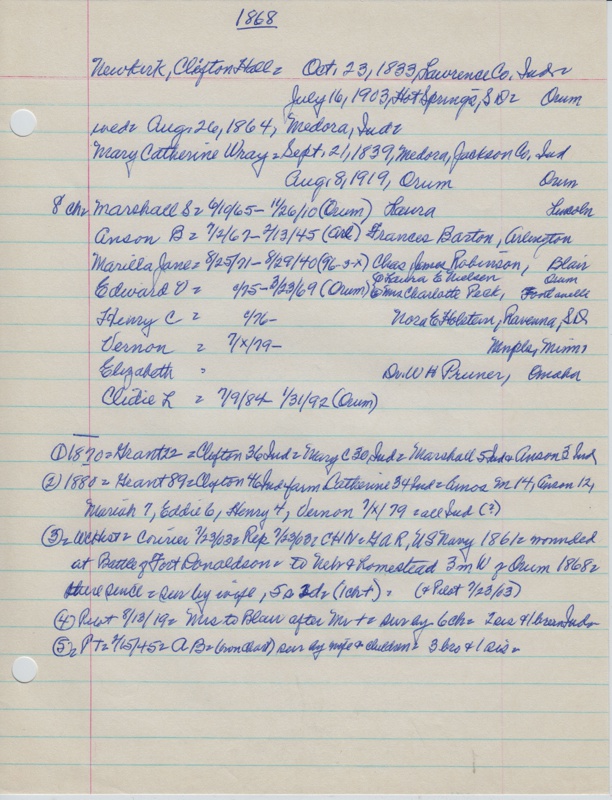 1868
Newkirk, Clayton Hall = Oct. 23, 1833, Lawrence Co. Ind =
July 16, 1903, Hot Springs, SD = Orum
wed = Aug. 26, 1864, Medora, Ind =
Mary Catherine Wray = Sept. 21, 1839, Medora, Jackson Co. Ind
Aug. 8, 1919, Orum Orum
8 ch = Marshall S = 6/10/65 - 11/26/10 (Orum) Laura Lincoln
Anson B = 7/2/67 - 7/13/45 (Arl) Frances Barton, Arlington
Marilla Jane = 8/25/71 - 8/29/40 (96-3-x) Chas James Robinson, Blair
① Laura E Nielsen Orum
Edward V = c/75 - 3/23/69 (Orum) ② Mrs Charlotte Peak, Fontanelle
Henry C = c/76 - Nora E Holstein, Ravenna, SD
Vernon = 7/x/79 - Mnpls, Minn
Elizabeth = Dr. W H Pruner, Omaha
Clidie L = 7/9/84 - 1/31/92 (Orum)
① 1870 = Grant 22 = Clifton 36 Ind = Mary C 30, Ind = Marshall 5 Ind = Anson 3 Ind
② 1880 = Grant 89 = Clayton 46 Ind farm Catherine 34 Ind = Amos M 14, Anson 12,
Mariah 7, Eddie 6, Henry 4, Vernon 7/x/79 = all Ind (?)
③ = Courier 7/23/03 = Rep 7/23/03 = CHN = GAR, US Navy 1861 = wounded
at Battle of Fort Donaldson = to Nebr & homestead 3 m W of Orum 1868 =
there since = sur by wife, 5 s 2 d = (1 ch +) = (& Pilot 7/23/03)
④ Pilot 8/13/19 = Mrs to Blair after Mr + = sur by 6 ch = 2 sis & 1 bro Ind =
⑤ = PT = 7/15/45 = A B = (own chart) sur by wife & children = 3 bro & 1 sis =